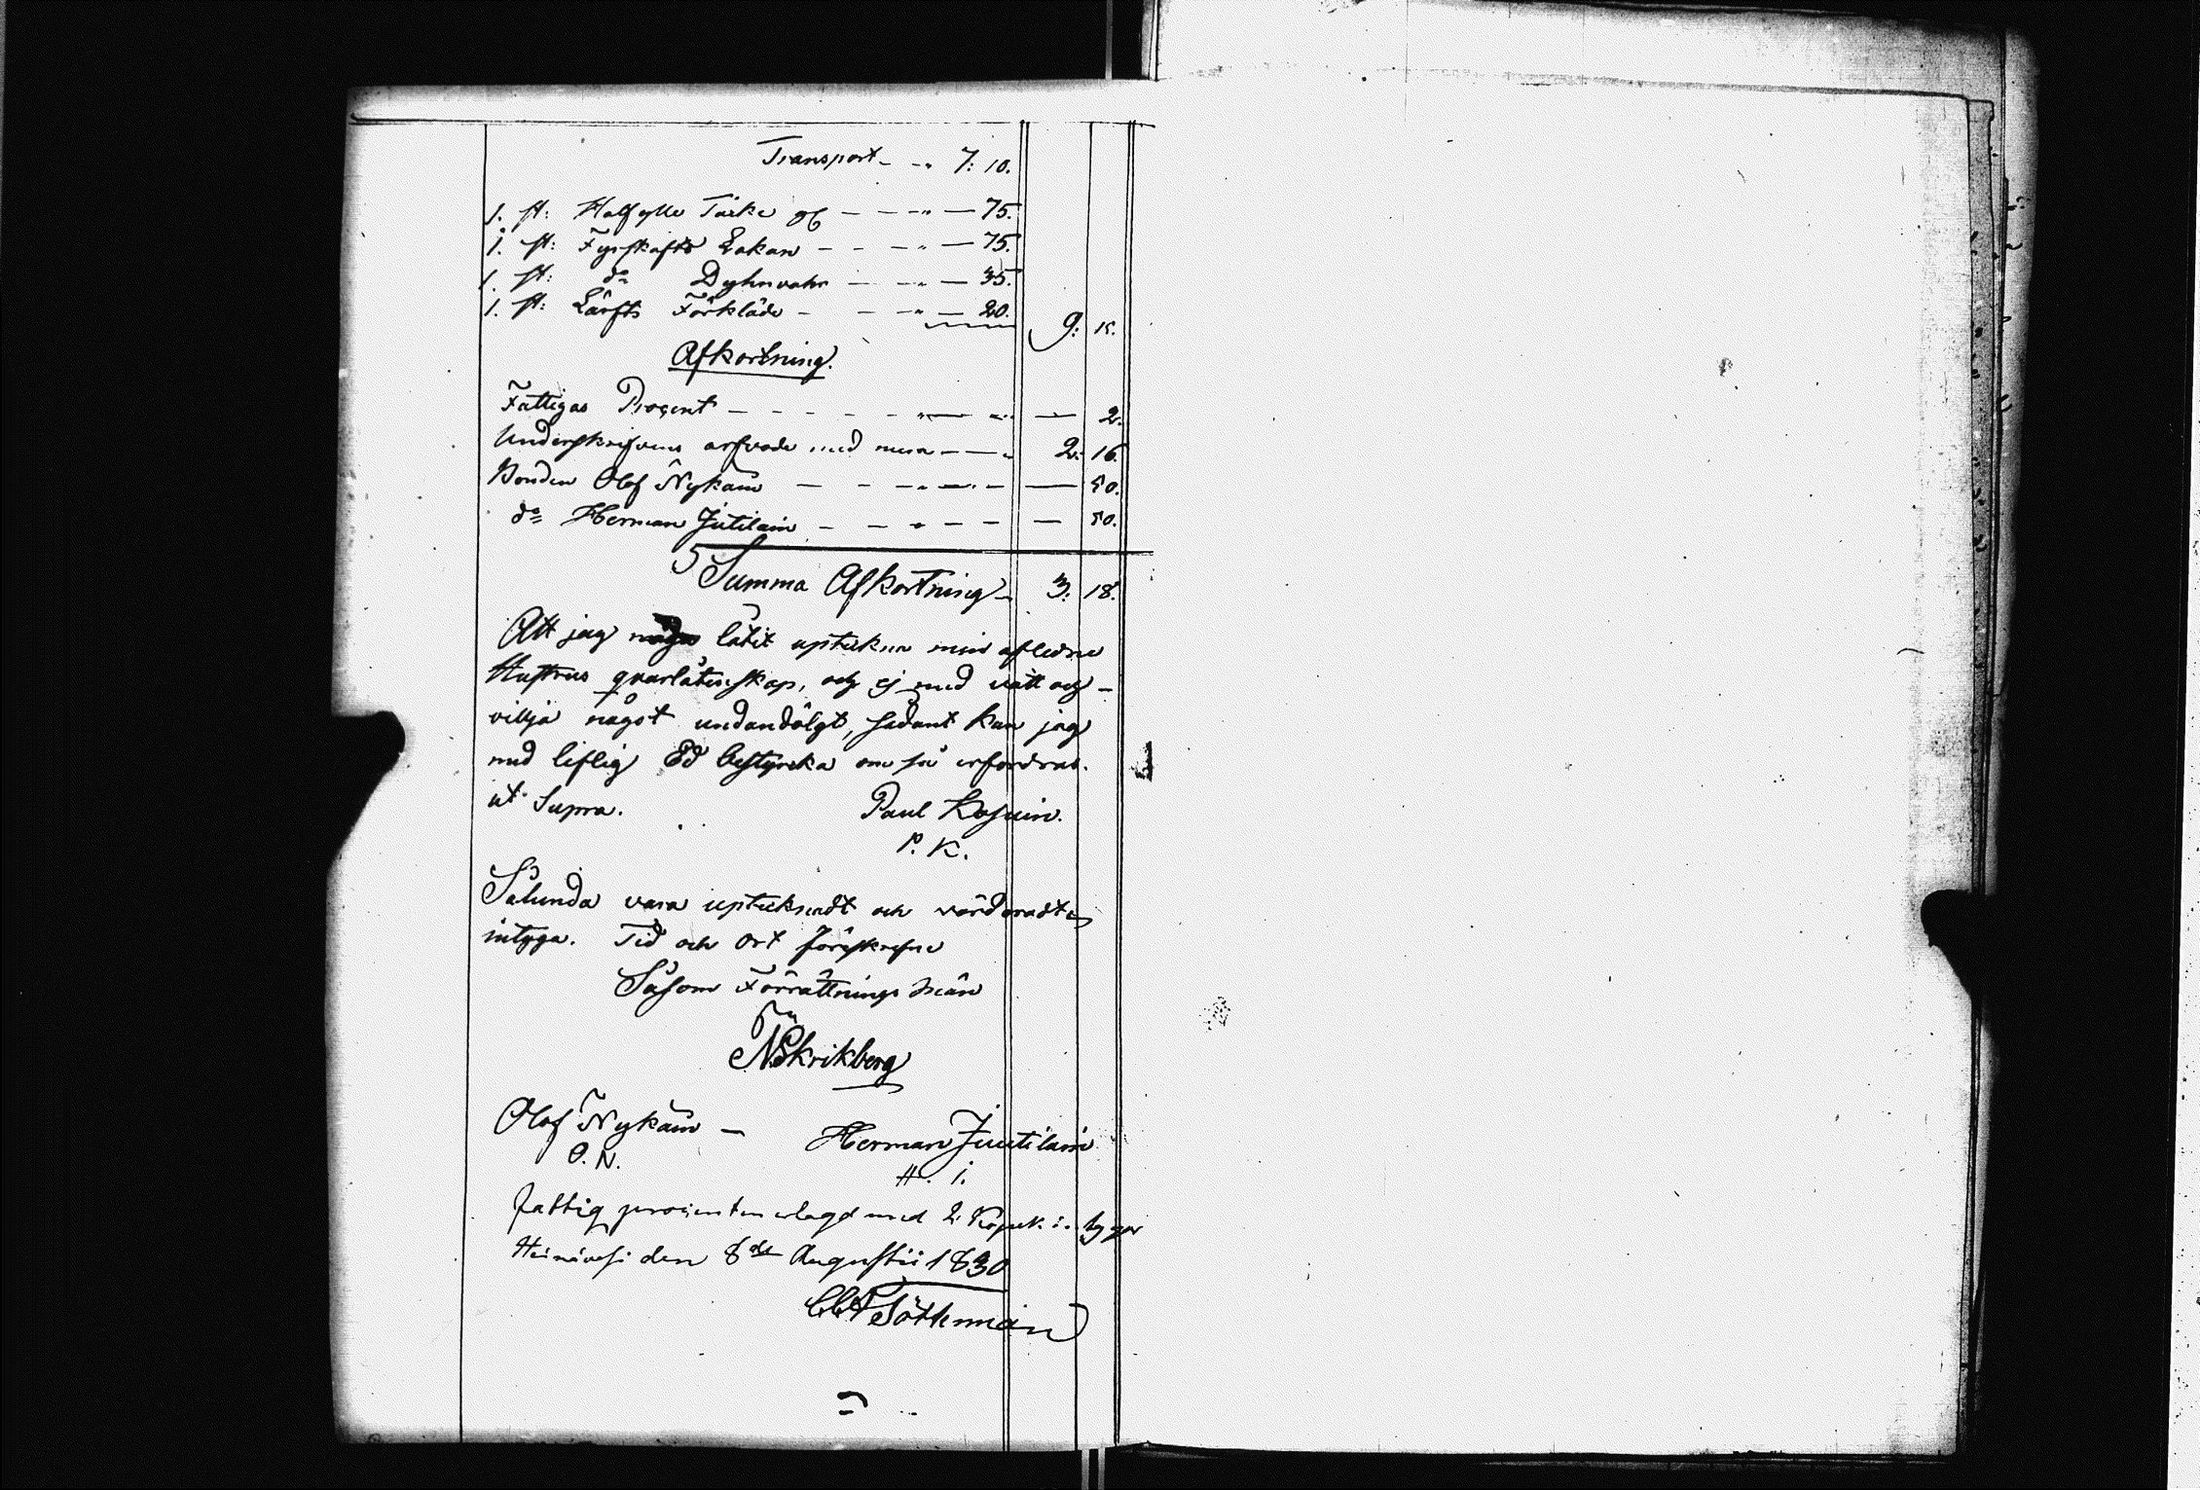 Transport - - " 7: 10.
1. st: Halfylle Täcke - - - " - 75.
1. st: Fyrskafts Lakan - - - " - 75.
1. st: do Dyhnvahr - - " - 35.
1. st: Lärfts Förkläde - - - " - 20. 9: 15.
Afkortning.
Fattigas Procent - - - - - " - " - 2.
Underskrifvens arfvode med mera - - - 2: 16.
Bonden Olof Nykäin - - - " - " - - 50.
do Herman Jutilain - - " - - - 50.
Summa Afkortning - 3: 18.
Att jag låtit uptekna min afledne
Hustrus qvarlåtenskap, och ej med vett och
vilja något undandölgt, sådant kan jag
med liflig Ed bestyrcka om så erfordras.
ut Supra. Paul Kosuin.
P. K.
Sålunda vara uptecknadt och värderadt
intyga. Tid och Ort förskrefne
Såsom Förrättnings Män
NSkrikberg
Olof Nykäin - Herman Juutilain
O. N. H. i.
Fattig procenten erlagd med 2 Kopek:
Heinävesi den 8de Augusti 1830